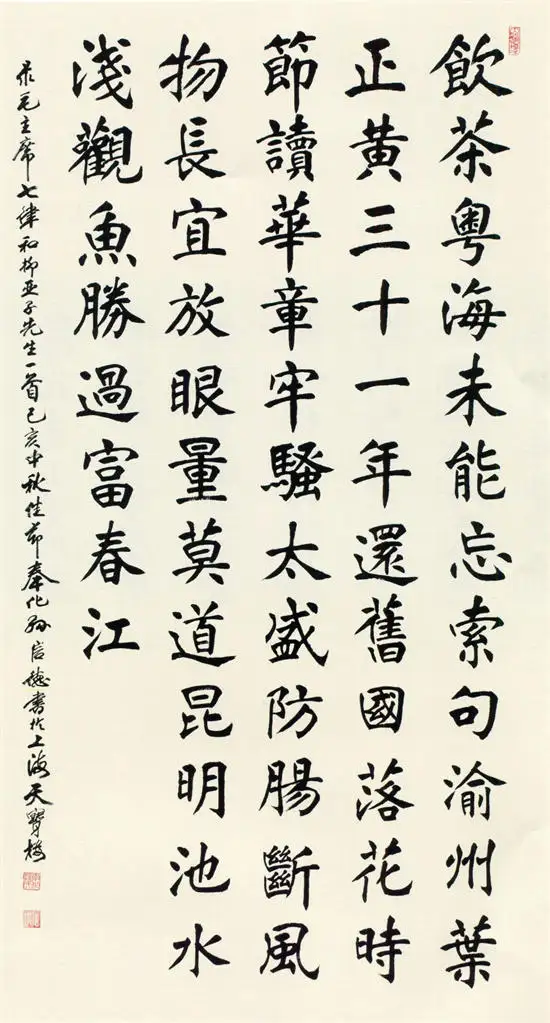 飲茶粵海未能忘索句渝州葉
正黃三十一年還舊國落花時
節讀華章牢騷太盛防腸斷風
物長宜放眼量莫道昆明池水
淺觀魚勝過富春江
录毛主席七律和柳亚子先生一首己亥中秋佳节奉化孙信德書於上海天寶樓